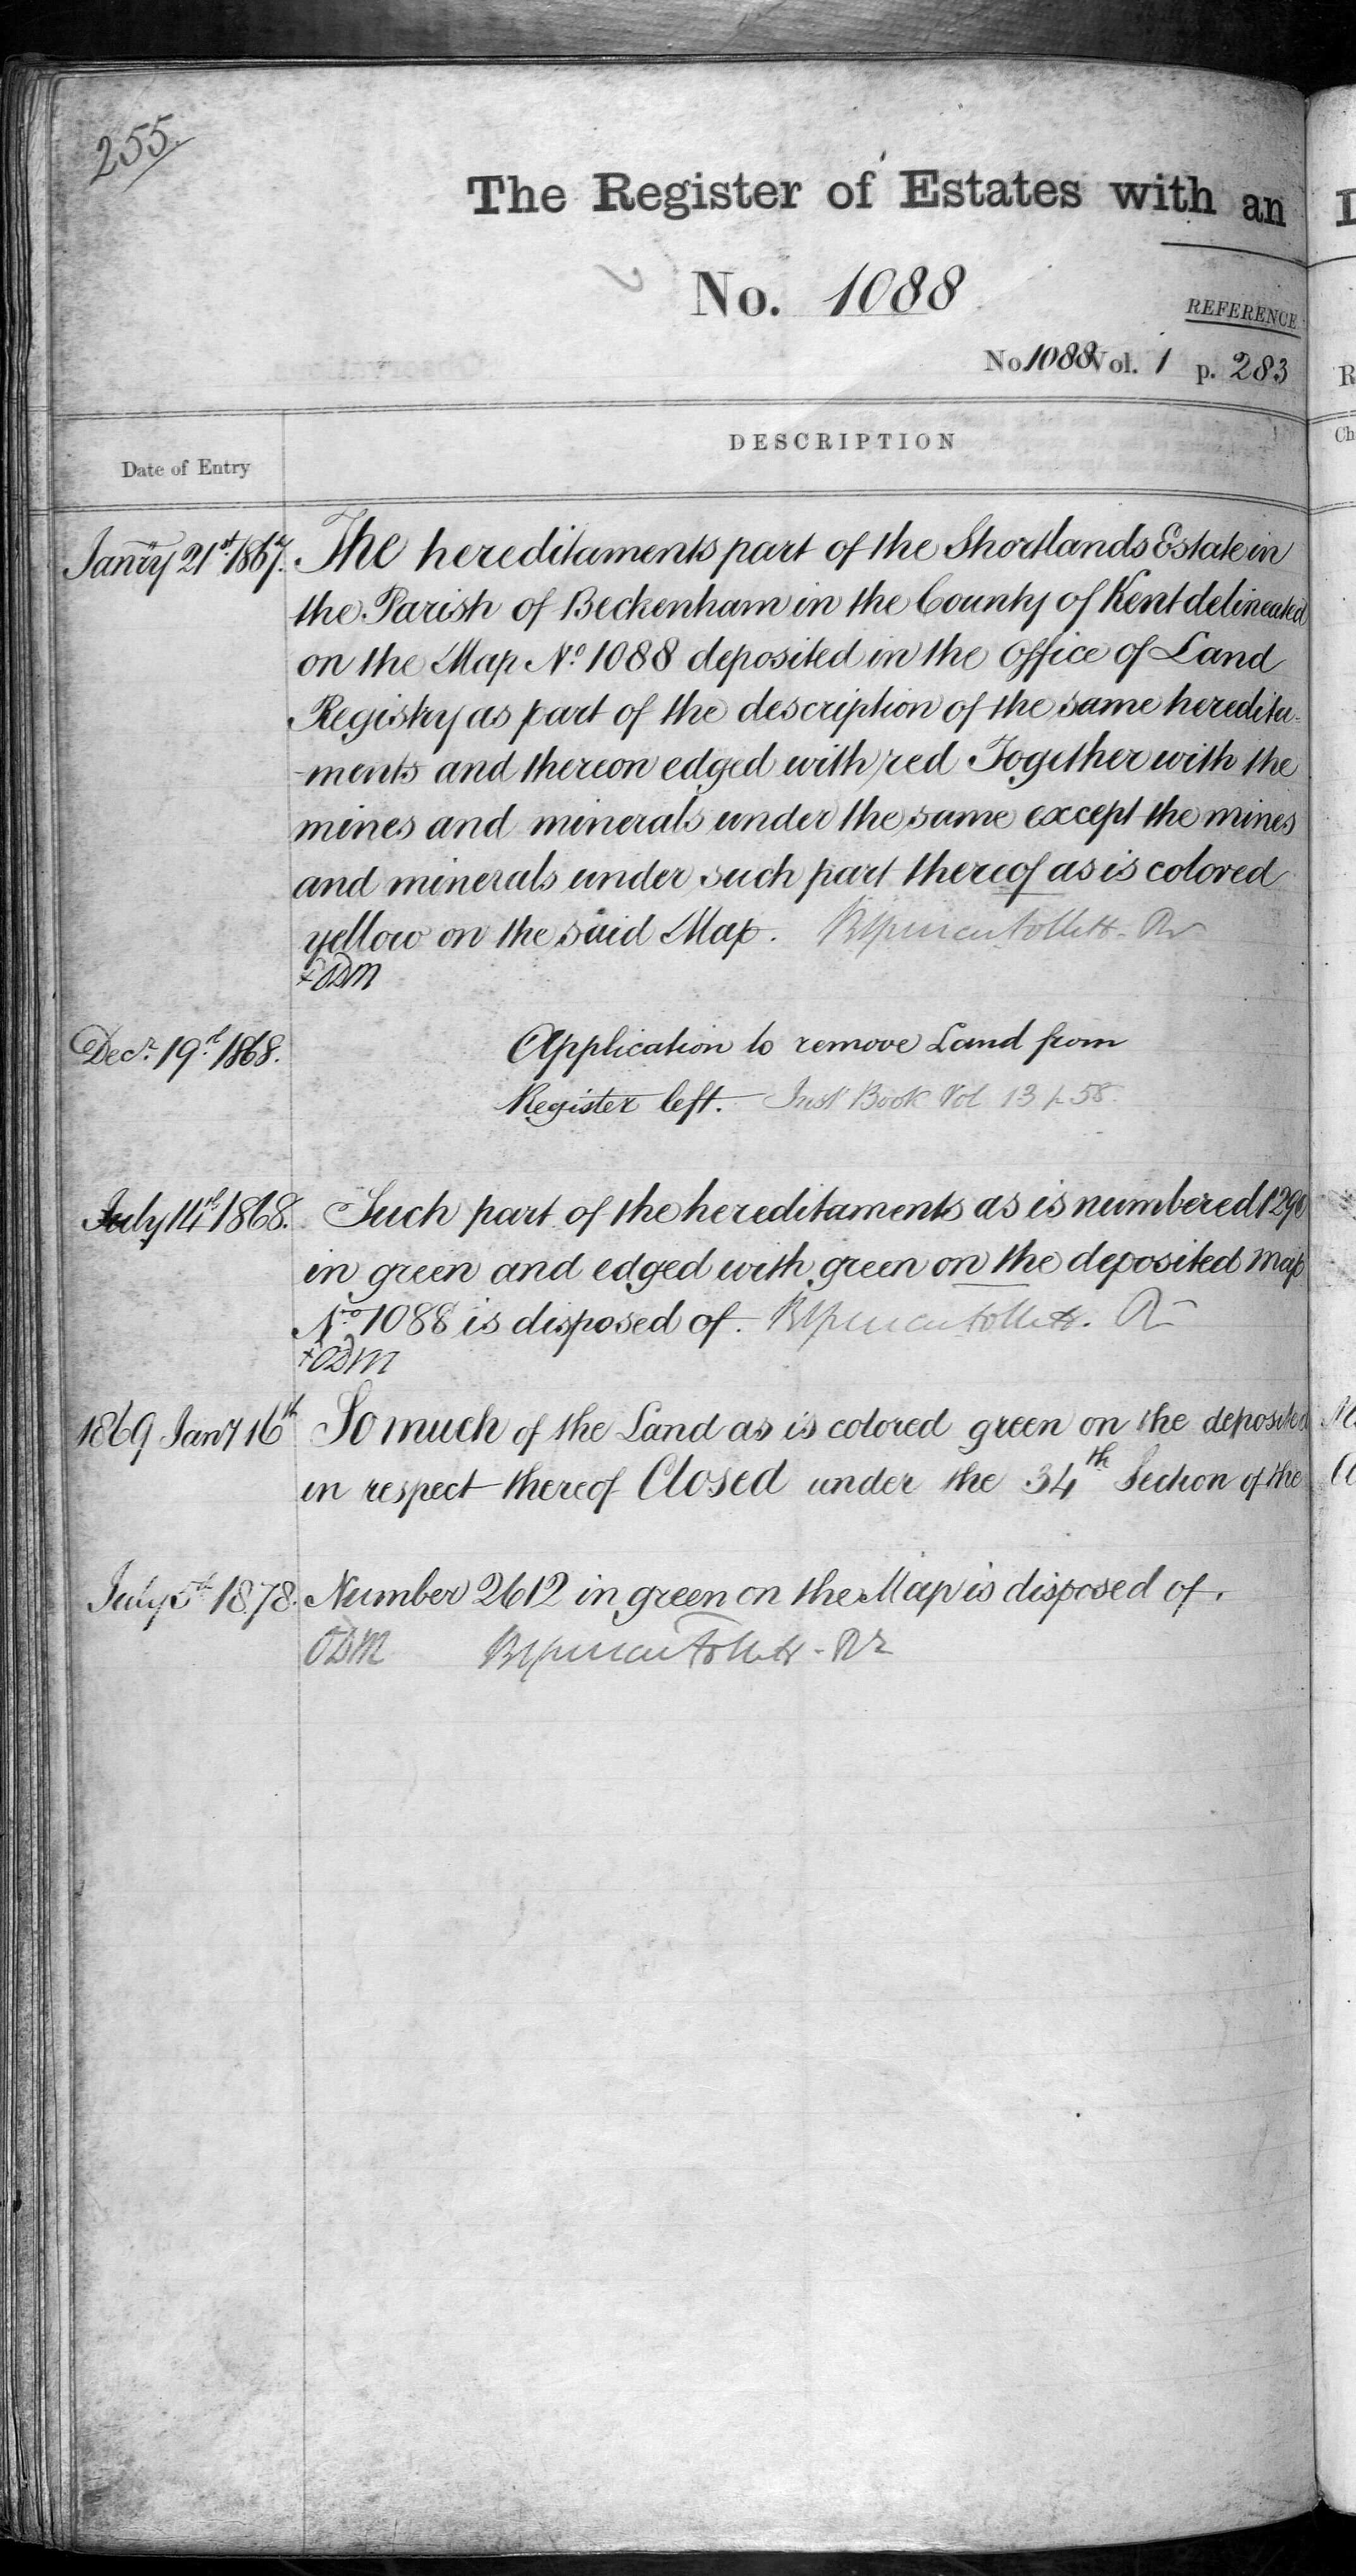 255.
The Register of Estates with an
No. 1088
REFERENCE
No 1088 Vol. 1 p. 283
Date of Entry
DESCRIPTION
Janry 21st 1867. The hereditaments part of the Shortlands Estate in
the Parish of Beckenham in the County of Kent delineated
on the Map No. 1088 deposited in the Office of Land
Registry as part of the description of the same heredita-
-ments and thereon edged with red Together with the
mines and minerals under the same except the mines
and minerals under such part thereof as is colored
yellow on the said Map. Follett
+ODM
Decr. 19th 1868. Application to remove Land from
Register left. Inst Book Vol 13 p 58
July 14th 1868. Such part of the hereditaments as is numbered
in green and edged with green on the deposited Map
No. 1088 is disposed of. Follett.
+ODM
1869 Jany 16th So much of the Land as is colored green on the deposited
in respect thereof Closed under the 34th Section of the
July 5th 1878. Number 2612 in green on the Map is disposed of.
ODM Follett